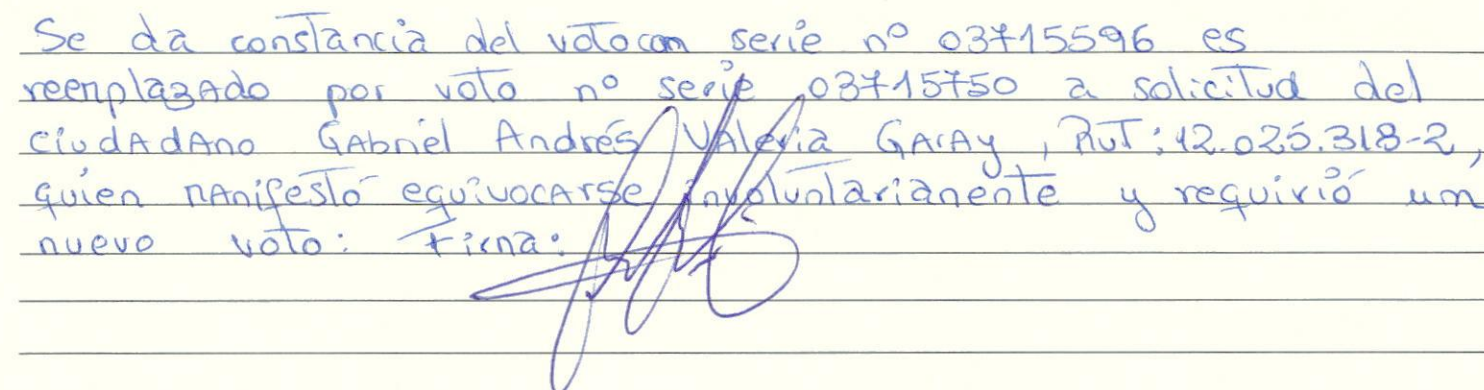 Se da constancia del voto con serie nº 03715596 es
reemplazado por voto nº serie 03715750 a solicitud del
ciudadano Gabriel Andrés Valeria Garay, RUT: 12.025.318-2,
quien manifestó equivocarse involuntariamente y requirió un
nuevo voto: Firma: